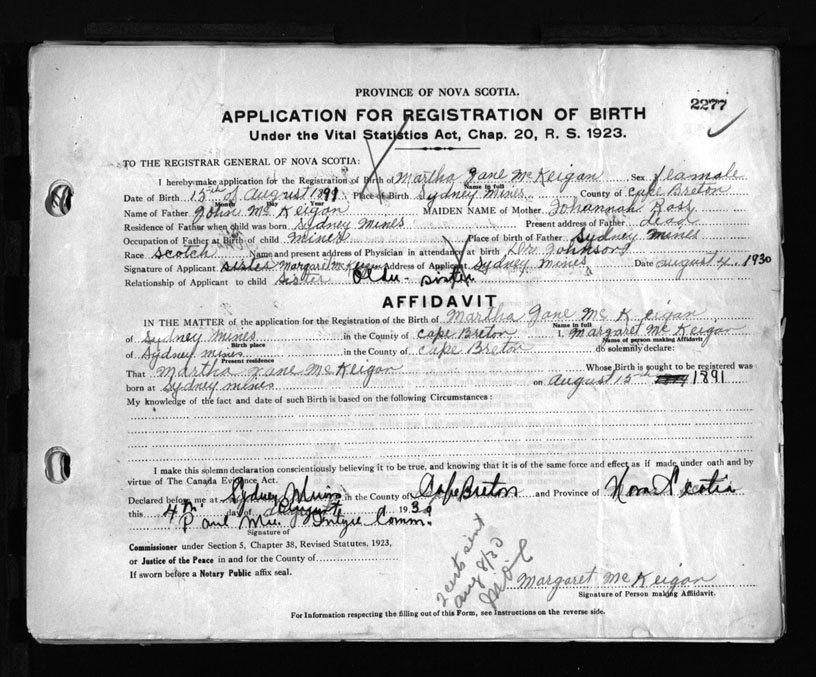 PROVINCE OF NOVA SCOTIA.
2277
APPLICATION FOR REGISTRATION OF BIRTH
Under the Vital Statistics Act, Chap. 20, R. S. 1923.
TO THE REGISTRAR GENERAL OF NOVA SCOTIA:
I hereby make application for the Registration of Birth of Martha Jane McKeigan Sex female
Name in full
Date of Birth 15th of August 1891 Place of Birth Sydney Mines County of Cape Breton
Month Day Year
Name of Father John McKeigan MAIDEN NAME of Mother Johannah Ross
Residence of Father when child was born Sydney Mines Present address of Father dead
Occupation of Father at Birth of child miner Place of birth of Father Sydney Mines
Race Scotch Name and present address of Physician in attendance at birth Dr Johnson
Signature of Applicant sister Margaret McKeigan Address of Applicant Sydney Mines Date august 4, 1930
Relationship of Applicant to child Sister Older sister
AFFIDAVIT
IN THE MATTER of the application for the Registration of the Birth of Martha Jane McKeigan
Name in full
of Sydney Mines in the County of Cape Breton I, Margaret McKeigan
Birth place Name of person making Affidavit
of Sydney Mines in the County of Cape Breton do solemnly declare:
Present residence
That Martha Jane McKeigan Whose Birth is sought to be registered was
born at Sydney Mines on August 15th 1891
My knowledge of the fact and date of such Birth is based on the following Circumstances:
I make this solemn declaration conscientiously believing it to be true, and knowing that it is of the same force and effect as if made under oath and by
virtue of The Canada Evidence Act.
Declared before me at Sydney Mines in the County of Cape Breton and Province of Nova Scotia
this 4th day of August 1930
Paul McIntyre Comm.
Signature of
Commissioner under Section 5, Chapter 38, Revised Statutes, 1923,
or Justice of the Peace in and for the County of
If sworn before a Notary Public affix seal.
2 certs sent
Aug 8/30
Margaret McKeigan
Signature of Person making Affidavit.
For Information respecting the filling out of this Form, see Instructions on the reverse side.